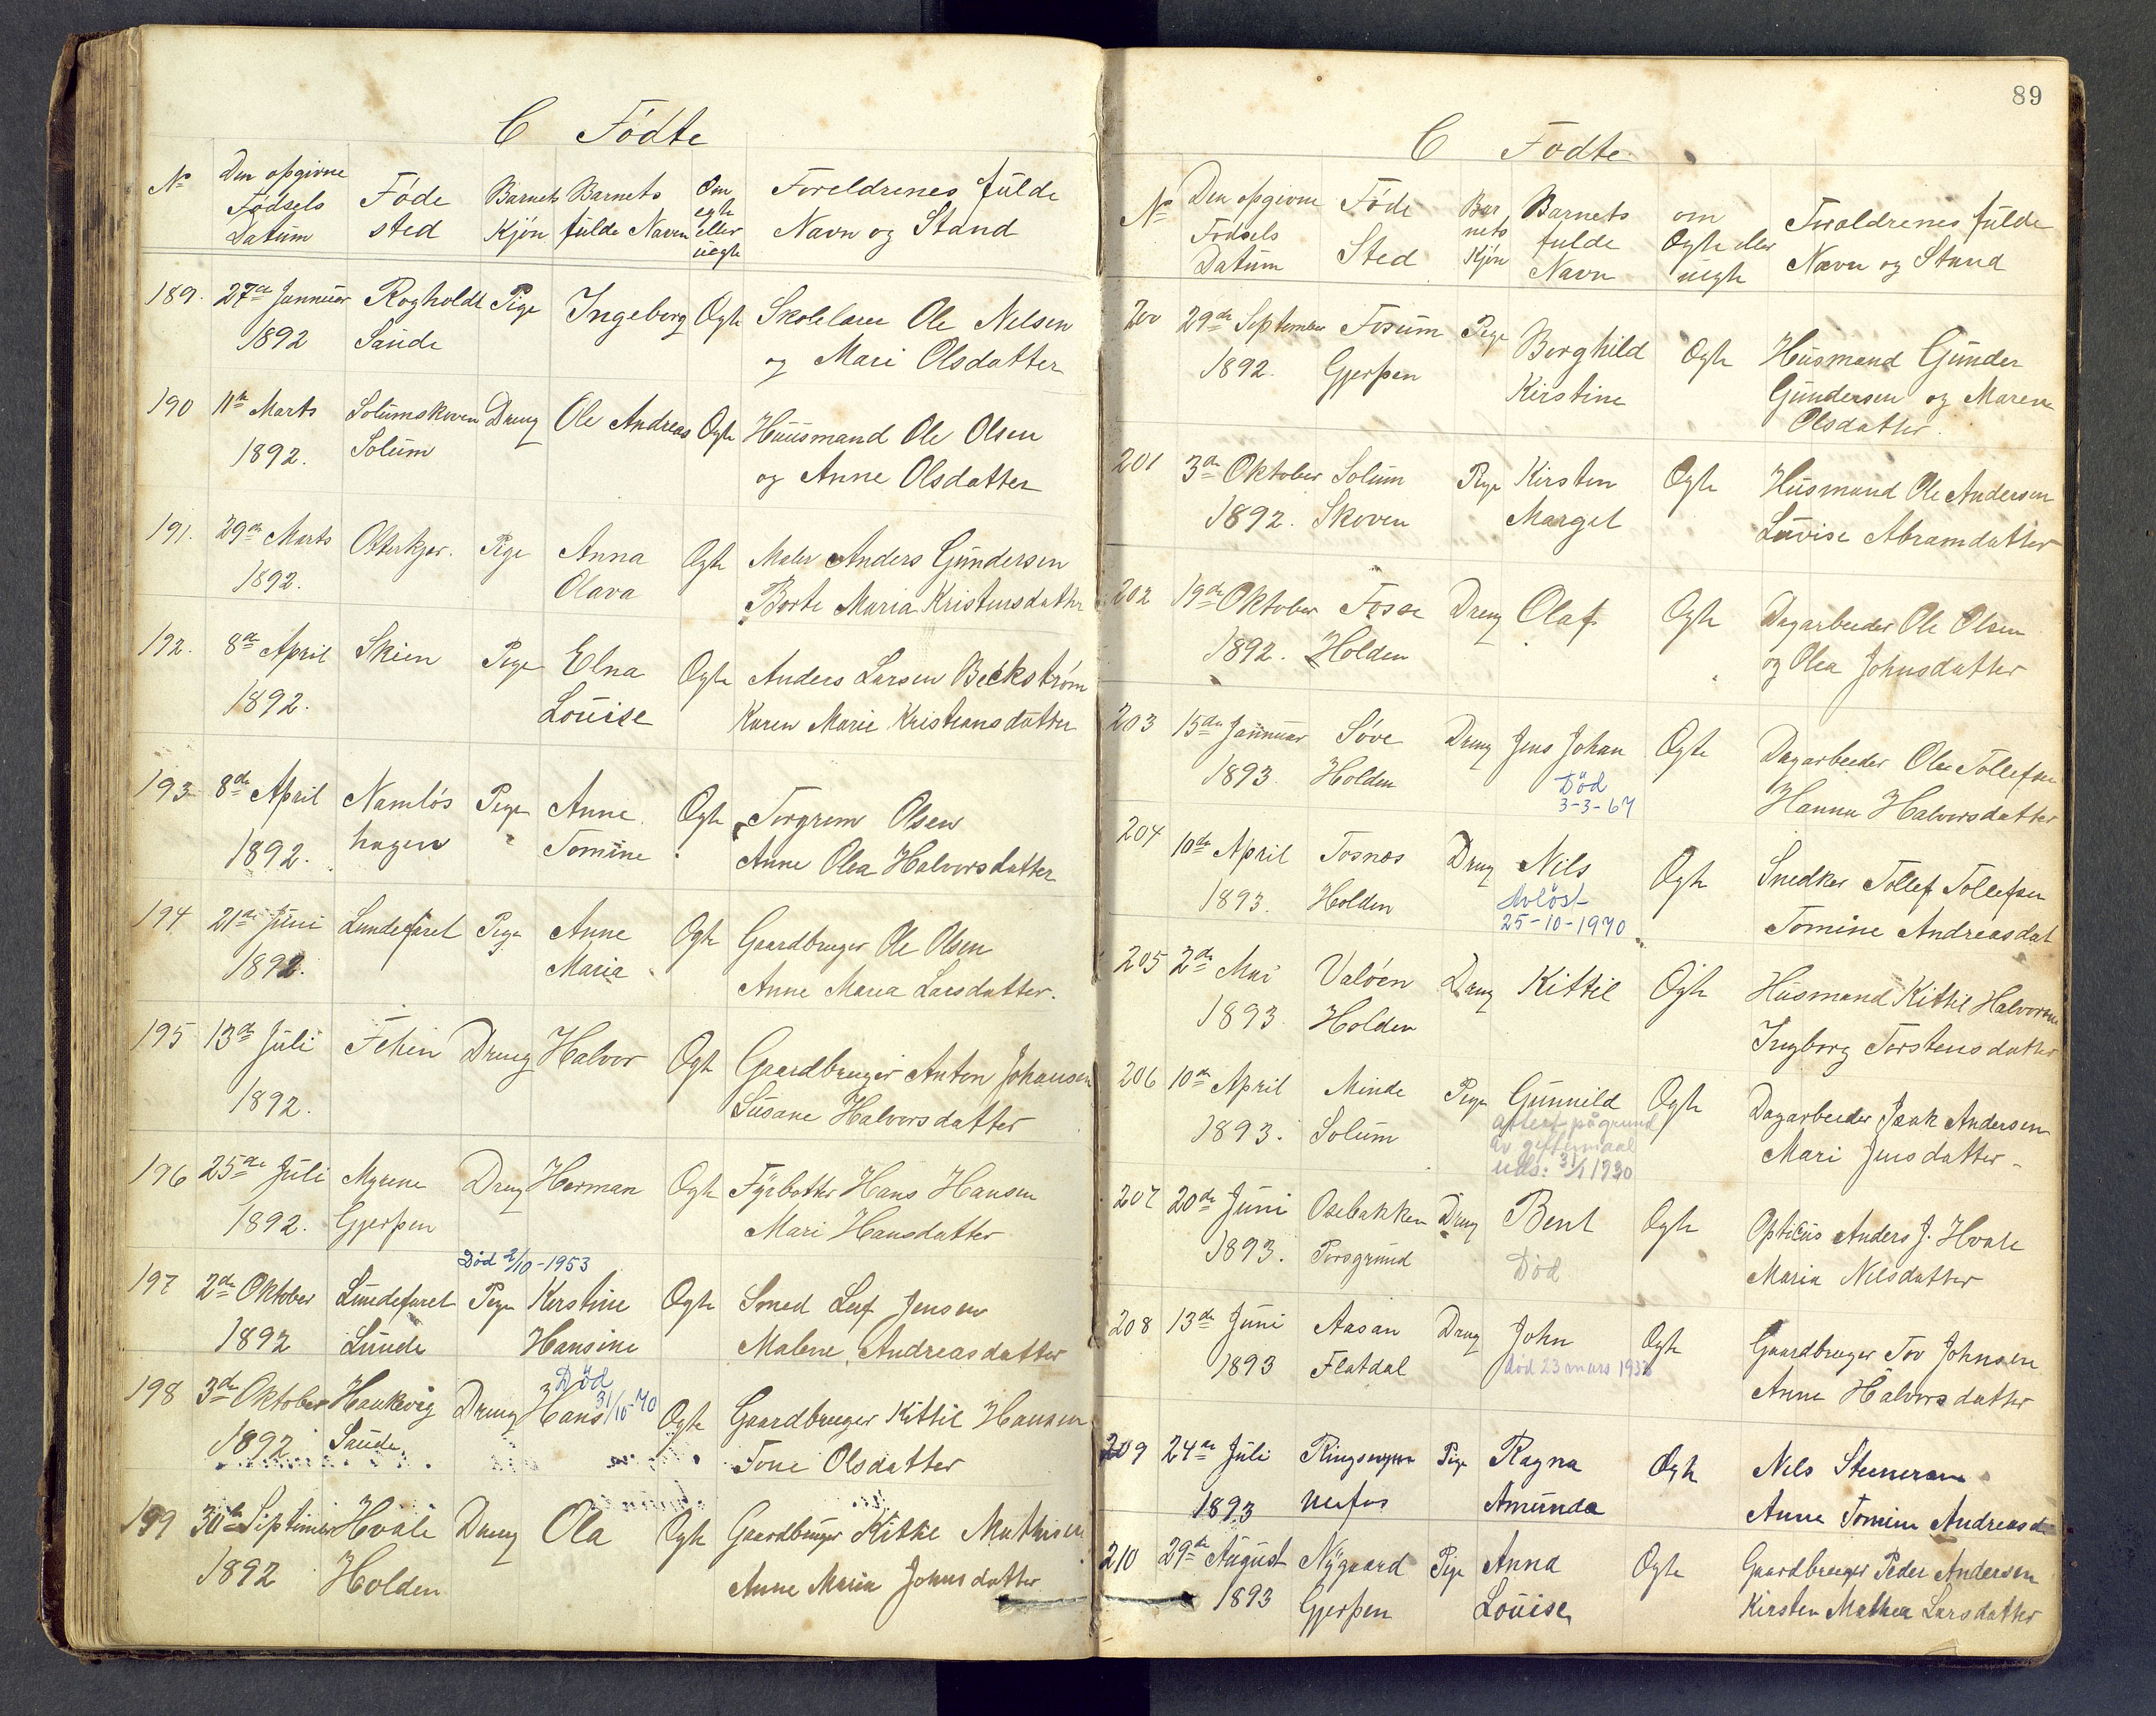 C Fødte
No Den opgivne Fødsels Datum Føde sted Barnets Kjøn Barnets fulde Navn Om egte eller uegte Foreldrenes fulde Navn og Stand
189. 27de Januar Rogholdt Pige Ingeborg Ægte Skolelærer Ole Nelsen
1892 Saude og Mari Olsdatter
190 11te Marts Solumskoven Dreng Ole Andreas Ægte Huusmand Ole Olsen
1892. Solum og Anne Olsdatter
191. 29de Marts Pige Anna Ægte Maler Anders Gundersen
1892. Olava Borte Maria Kristensdatter
192. 8de April Skien Pige Elna Ægte Anders Larsen Beckstrøm
1892. Louise Karen Marie Kristiansdatter
193 8de April Namløs Pige Anne Ægte Torgrim Olsen
1892. hagen Tomine Anne Olea Halvorsdatter
194 21de Juni Lundefaret Pige Anne Ægte Gaardbruger Ole Olsen
1892. Maria Anne Maria Larsdatter.
195 13de Juli Fehen Dreng Halvor Ægte Gaardbruger Anton Johansen
1892. Susane Halvorsdatter
196 25de Juli Myrene Dreng Herman Ægte Fyrbøtter Hans Hansen
1892. Gjerpen Mari Hansdatter
Død 2/10-1953
197 2de Oktober Lundefaret Pige Kirstine Ægte Smed Leif Jensen
1892 Lunde Hansine Malene Andreasdatter
Død
198 3de Oktober Haukevig Dreng Hans 31/10-70 Ægte Gaardbruger Kittil Hansen
1892 Saude Tone Olsdatter
199 30te Septimber Hvale Dreng Ola Ægte Gaardbruger Kittil Mathisen
1892 Holden Anne Maria Johnsdatter
89
C Fødte
No Den opgivne Fødsels Datum Føde Sted Barnets Kjøn Barnets fulde Navn om Ægte eller uegte Foraldrenes fulde Navn og Stand
200 29de September Fosum Pige Borghild Ægte Husmand Gunder
1892. Gjerpen Kirstine Gundersen og Maren
Olsdatter.
201 3de Oktober Solum Pige Kirsten Ægte Husmand Ole Andersen
1892. Skoven Margit Lovise Abramdatter
202 19de Oktober Fosse Dreng Olaf Ægte Dagarbeider Ole Olsen
1892. Holden og Olea Johnsdatter
203 15de Januar Søve Dreng Jens Johan Ægte Dagarbeider Ole Tollefsen
1893. Holden Død Hanna Halvorsdatter
3-3-67
204 10de April Tosnos Dreng Nils Ægte Snedker Tollef Tollefsen
1893. Holden Avløst Tomine Andreasdat
25-10-1970
205 2de Mai Valøen Dreng Kittil Ægte Husmand Kittil Halvorsen
1893. Holden Ingborg Torstensdatter
206 10de April Minde Pige Gunnild Ægte Dagarbeider Isak Andersen
1893. Solum på grund Mari Jensdatter
av giftermaal
uds: 3/1 1930
207 20de Juni Osebakken Dreng Bent Ægte Opticus Anders J. Hvale
1893. Porsgrund Død Maria Nilsdatter
208 13de Juni Aasan Dreng John Ægte Gaardbruger Tov Johnsen
1893 Flatdal død 23 mars Anne Halvorsdatter
209 24de Juli Pige Ragna Ægte Nils
1893 Amunda Anne Tomine Andreasd
210 29de August Nygaard Pige Anna Ægte Gaardbruger Peder Andersen
1893 Gjerpen Louise Kirsten Mathea Larsdatter